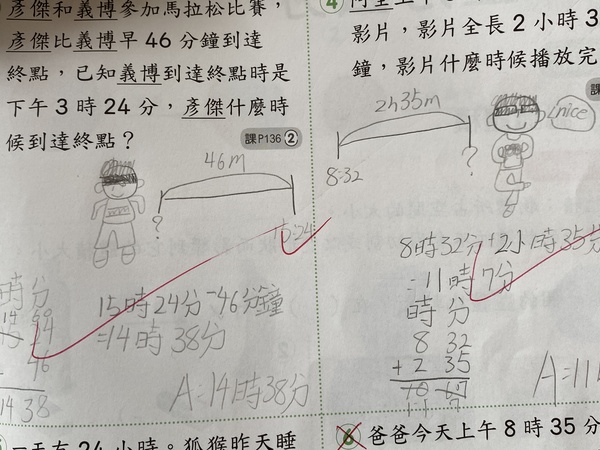 彥傑和義博參加馬拉松比賽，
彥傑比義博早 46 分鐘到達
終點，已知義博到達終點時是
下午 3 時 24 分，彥傑什麼時
候到達終點？
課P136 ②
46m
?
15:24
時 分
14 60
24
46
14 38
15時24分-46分鐘
=14時38分
A=14時38分
④
影片，影片全長 2 小時 3
鐘，影片什麼時候播放完
課
2h35m
nice
8:32
?
8時32分+2小時35分
=11時7分
時 分
8 32
+ 2 35
10 67
11 7
A=11
一天有 24 小時。狐猴昨天睡
6 爸爸今天上午 8 時 35 分